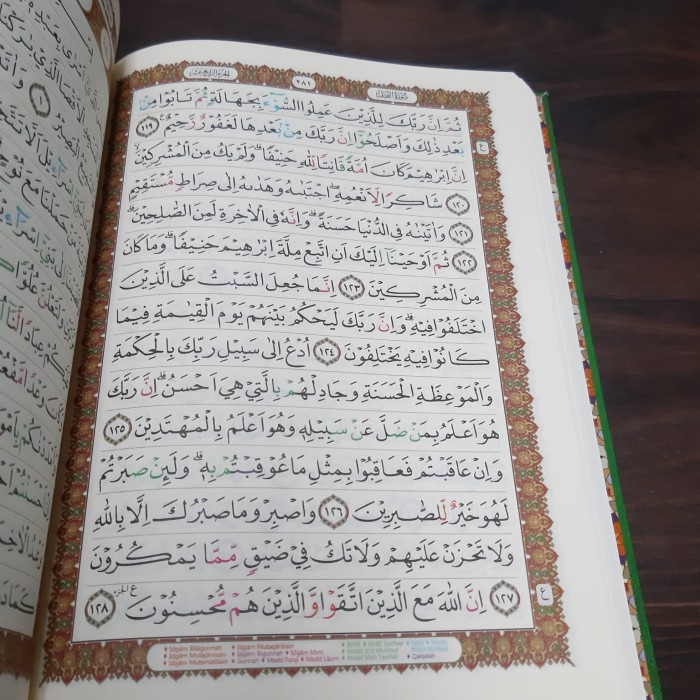 الجزء الرابع عشر
٢٨١
سورة النحل
ثُمَّ اِنَّ رَبَّكَ لِلَّذِيْنَ عَمِلُوا السُّوْۤءَ بِجَهَالَةٍ ثُمَّ تَابُوْا مِنْۢ
بَعْدِ ذٰلِكَ وَاَصْلَحُوْٓا اِنَّ رَبَّكَ مِنْۢ بَعْدِهَا لَغَفُوْرٌ رَّحِيْمٌ ࣖ ١١٩
اِنَّ اِبْرٰهِيْمَ كَانَ اُمَّةً قَانِتًا لِّلّٰهِ حَنِيْفًاۗ وَلَمْ يَكُ مِنَ الْمُشْرِكِيْنَۙ
١٢٠ شَاكِرًا لِّاَنْعُمِهٖۗ اِجْتَبٰىهُ وَهَدٰىهُ اِلٰى صِرَاطٍ مُّسْتَقِيْمٍ
١٢١ وَاٰتَيْنٰهُ فِى الدُّنْيَا حَسَنَةً ۗوَاِنَّهٗ فِى الْاٰخِرَةِ لَمِنَ الصّٰلِحِيْنَۗ
١٢٢ ثُمَّ اَوْحَيْنَآ اِلَيْكَ اَنِ اتَّبِعْ مِلَّةَ اِبْرٰهِيْمَ حَنِيْفًاۗ وَمَا كَانَ
مِنَ الْمُشْرِكِيْنَ ١٢٣ اِنَّمَا جُعِلَ السَّبْتُ عَلَى الَّذِيْنَ
اخْتَلَفُوْا فِيْهِۗ وَاِنَّ رَبَّكَ لَيَحْكُمُ بَيْنَهُمْ يَوْمَ الْقِيٰمَةِ فِيْمَا
كَانُوْا فِيْهِ يَخْتَلِفُوْنَ ١٢٤ اُدْعُ اِلٰى سَبِيْلِ رَبِّكَ بِالْحِكْمَةِ
وَالْمَوْعِظَةِ الْحَسَنَةِ وَجَادِلْهُمْ بِالَّتِيْ هِيَ اَحْسَنُۗ اِنَّ رَبَّكَ
هُوَ اَعْلَمُ بِمَنْ ضَلَّ عَنْ سَبِيْلِهٖ وَهُوَ اَعْلَمُ بِالْمُهْتَدِيْنَ ١٢٥
وَاِنْ عَاقَبْتُمْ فَعَاقِبُوْا بِمِثْلِ مَا عُوْقِبْتُمْ بِهٖۗ وَلَىِٕنْ صَبَرْتُمْ
لَهُوَ خَيْرٌ لِّلصّٰبِرِيْنَ ١٢٦ وَاصْبِرْ وَمَا صَبْرُكَ اِلَّا بِاللّٰهِ
وَلَا تَحْزَنْ عَلَيْهِمْ وَلَا تَكُ فِيْ ضَيْقٍ مِّمَّا يَمْكُرُوْنَ
١٢٧ اِنَّ اللّٰهَ مَعَ الَّذِيْنَ اتَّقَوْا وَّالَّذِيْنَ هُمْ مُّحْسِنُوْنَ ١٢٨